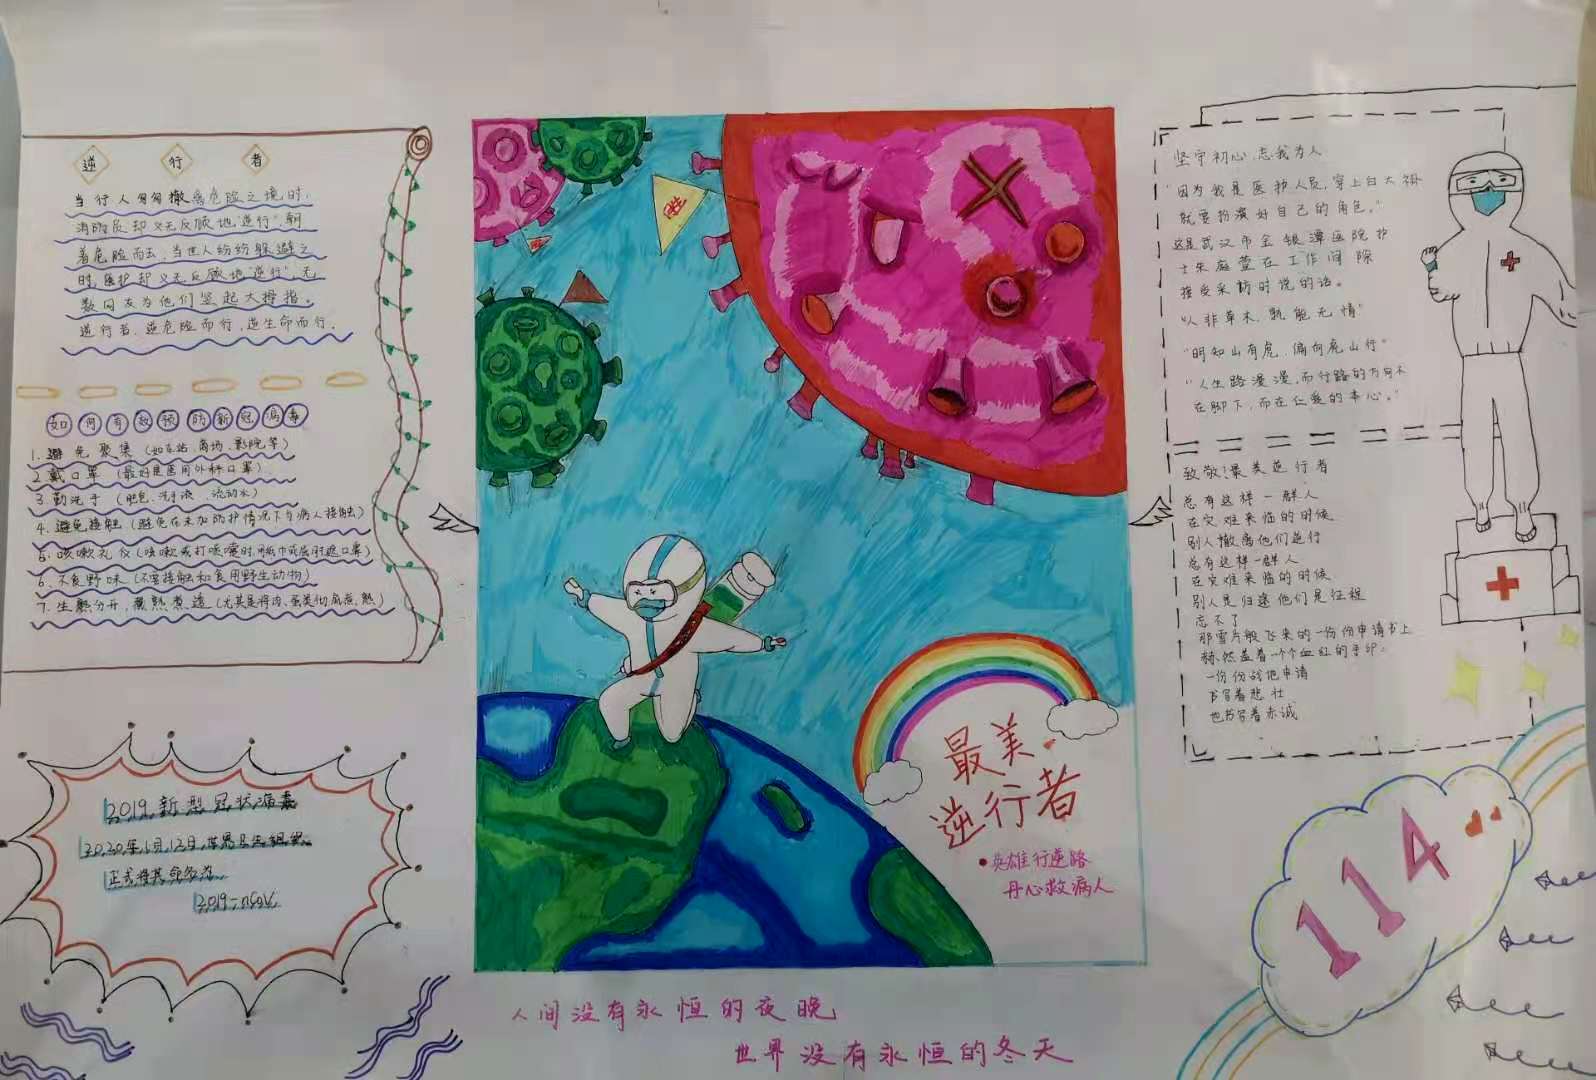 逆行者
当行人匆匆撤离危险之境时,
消防员却义无反顾地"逆行",朝
着危险而去,当世人纷纷躲避之
时,医护却义无反顾地"逆行",无
数网友为他们竖起大拇指。
逆行者,逆危险而行,逆生命而行。
如何有效预防新冠病毒
1.避免聚集(如车站、商场、影院等)
2.戴口罩(最好是医用外科口罩)
3.勤洗手(肥皂、洗手液、流动水)
4.避免接触(避免在未加防护情况下与病人接触)
5.咳嗽礼仪(咳嗽或打喷嚏时用纸巾或屈肘遮口罩)
6.不食野味(不要接触和食用野生动物)
7.生熟分开,蒸熟煮透
2019新型冠状病毒
2020年1月12日,世界卫生组织
正式将其命名为
2019-nCoV
胜
最美
逆行者
英雄行逆路
丹心救病人
人间没有永恒的夜晚
世界没有永恒的冬天
坚守初心,忘我为人
"因为我是医护人员,穿上白大褂
就要扮演好自己的角色。"
这是武汉市金银潭医院护
士朱庭萱在工作间隙
接受采访时说的话。
"人非草木,孰能无情"
"明知山有虎,偏向虎山行"
"人生路漫漫,而行路的方向不
在脚下,而在仁爱的本心。"
致敬!最美逆行者
总有这样一群人
在灾难来临的时候
别人撤离他们逆行
总有这样一群人
在灾难来临的时候
别人是归途他们是征程
忘不了
那雪片般飞来的一份份申请书上
赫然盖着一个个血红的手印:
一份份战地申请
书写着悲壮
也书写着赤诚
114